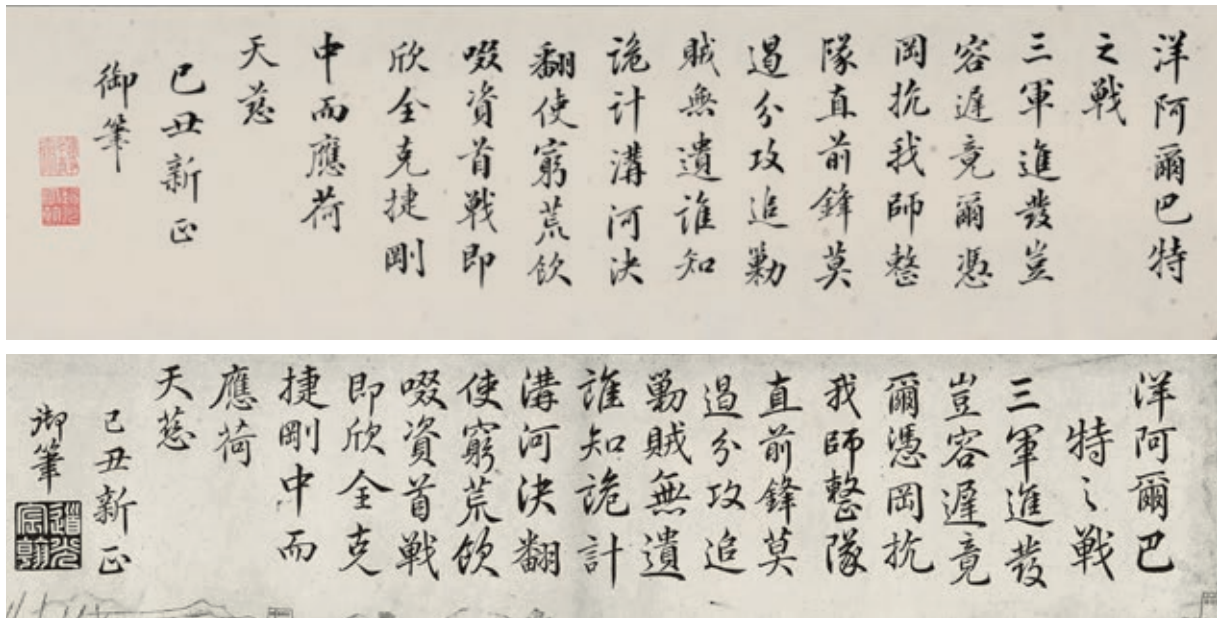 洋阿爾巴特
之戰
三軍進發豈
容遲竟爾憑
岡抗我師整
隊直前鋒莫
遏分攻追勦
賊無遺誰知
詭計溝河決
翻使窮荒飲
啜資首戰即
欣全克捷剛
中而應荷
天慈
己丑新正
御筆
洋阿爾巴
特之戰
三軍進發
豈容遲竟
爾憑岡抗
我師整隊
直前鋒莫
遏分攻追
勦賊無遺
誰知詭計
溝河決翻
使窮荒飲
啜資首戰
即欣全克
捷剛中而
應荷
天慈
己丑新正
御筆
道光
宸翰